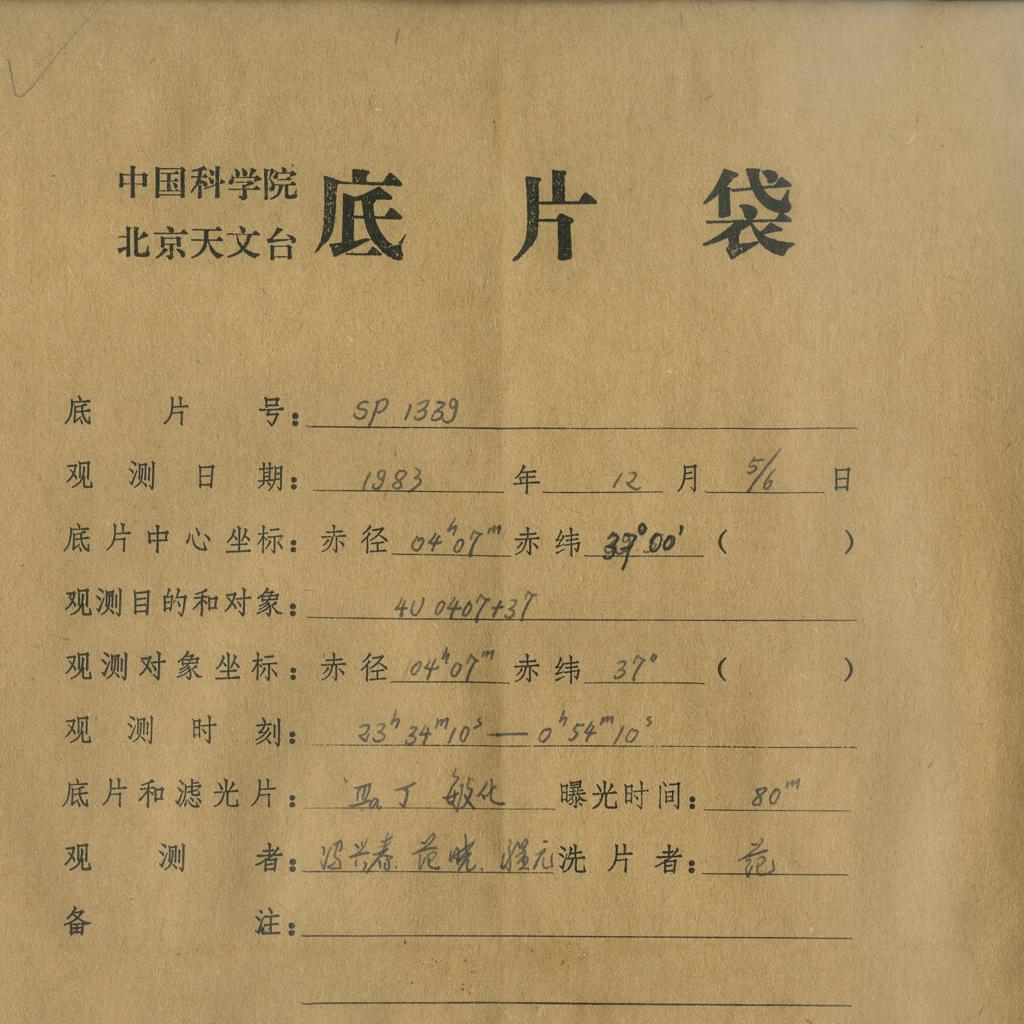 中国科学院
北京天文台
底片袋
底片号：SP 1339
观测日期：1983年12月5/6日
底片中心坐标：赤径04ʰ07ᵐ赤纬37°00'（ ）
观测目的和对象：4U 0407+37
观测对象坐标：赤径04ʰ07ᵐ赤纬37°（ ）
观测时刻：23ʰ34ᵐ10ˢ—0ʰ54ᵐ10ˢ
底片和滤光片：IIIa J 敏化 曝光时间：80ᵐ
观测者：冯兴春. 范晓. 洗片者：范
备注：